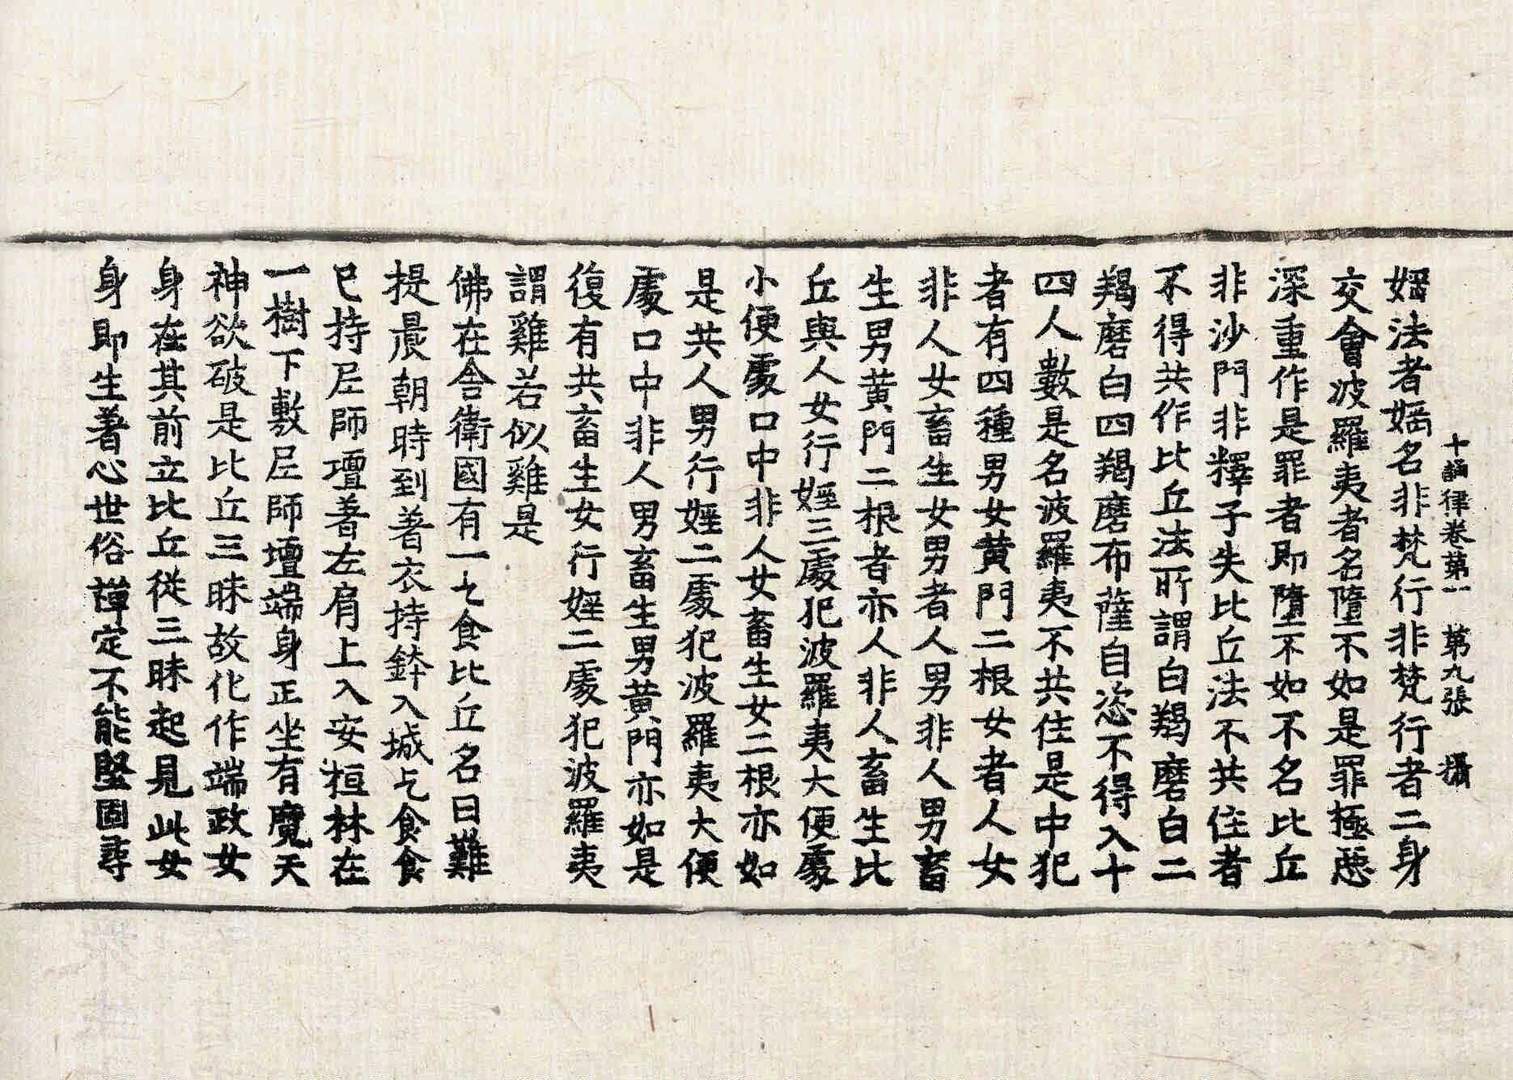 十誦律卷第一　第九張　攝
婬法者婬名非梵行非梵行者二身
交會波羅夷者名墮不如是罪極惡
深重作是罪者即墮不如不名比丘
非沙門非釋子失比丘法不共住者
不得共作比丘法所謂白羯磨白二
羯磨白四羯磨布薩自恣不得入十
四人數是名波羅夷不共住是中犯
者有四種男女黄門二根女者人女
非人女畜生女男者人男非人男畜
生男黄門二根者亦人非人畜生比
丘與人女行婬三處犯波羅夷大便處
小便處口中非人女畜生女二根亦如
是共人男行婬二處犯波羅夷大便
處口中非人男畜生男黄門亦如是
復有共畜生女行婬二處犯波羅夷
謂雞若似雞是
佛在舍衛國有一乞食比丘名曰難
提晨朝時到著衣持鉢入城乞食食
已持尼師壇著左肩上入安桓林在
一樹下敷尼師壇端身正坐有魔天
神欲破是比丘三昧故化作端政女
身在其前立比丘從三昧起見此女
身即生著心世俗禪定不能堅固尋